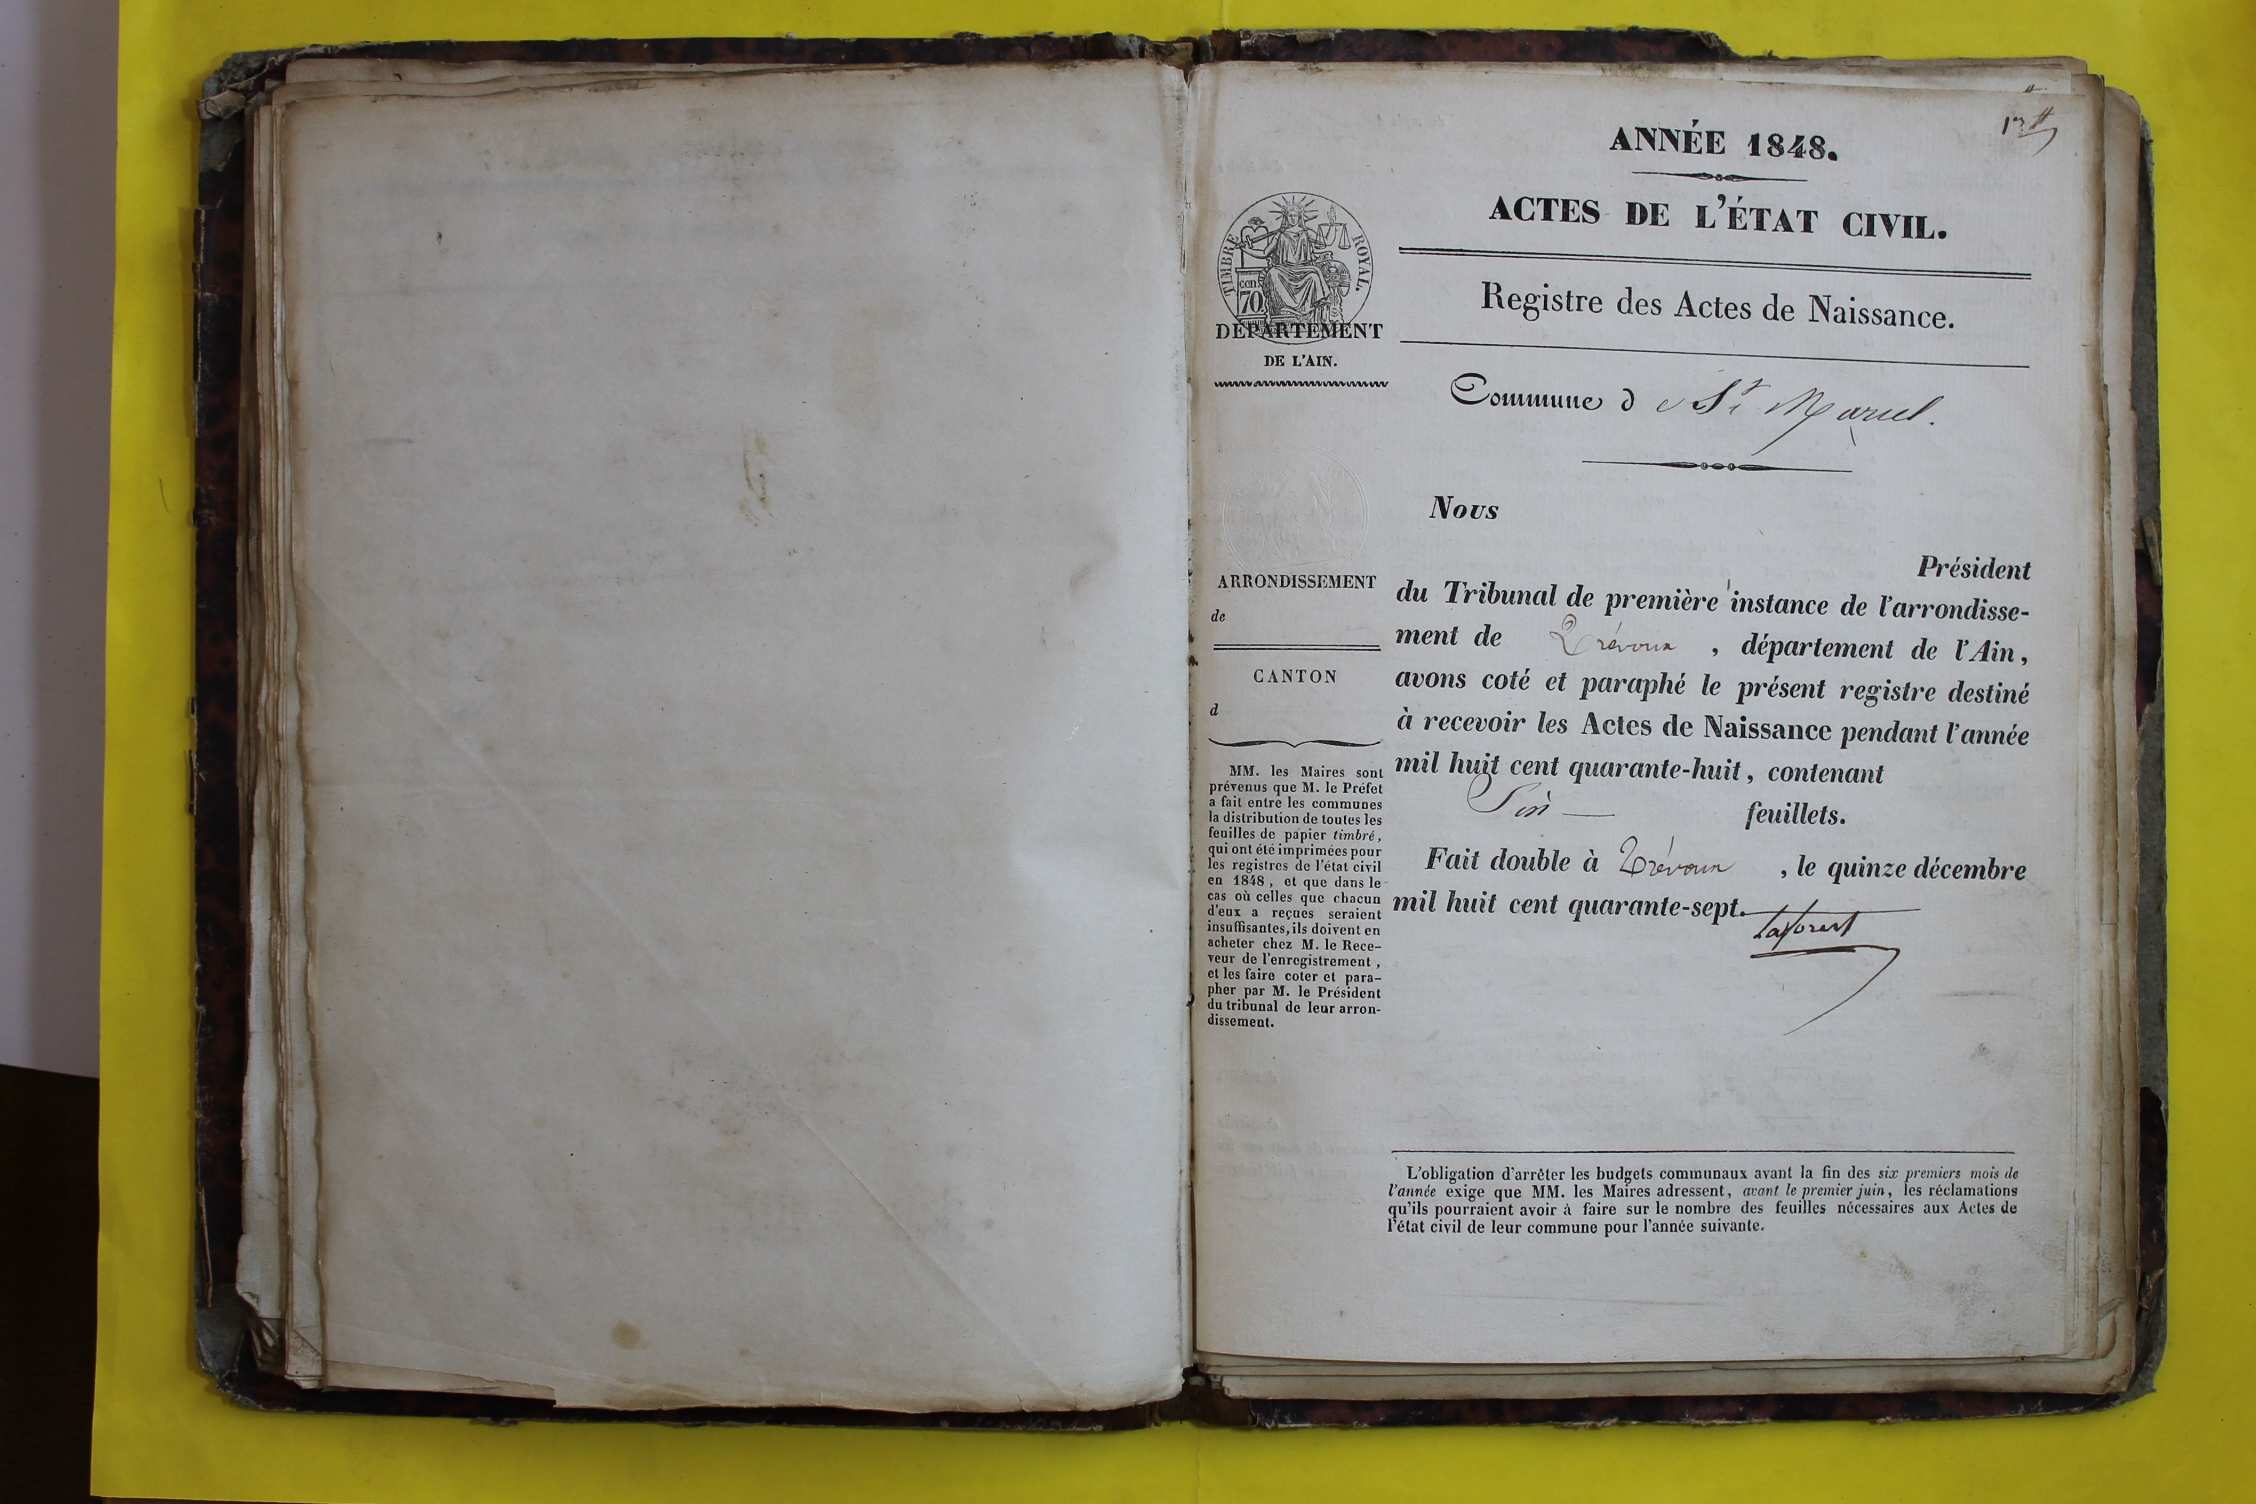 1er ff
ANNÉE 1848.
ACTES DE L'ÉTAT CIVIL.
Registre des Actes de Naissance.
TIMBRE ROYAL.
cen
70
DÉPARTEMENT
DE L'AIN.
Commune de St Marcel.
Nous
Président
du Tribunal de première instance de l'arrondisse-
ment de Trévoux, département de l'Ain,
avons coté et paraphé le présent registre destiné
à recevoir les Actes de Naissance pendant l'année
mil huit cent quarante-huit, contenant
Six feuillets.
Fait double à Trévoux, le quinze décembre
mil huit cent quarante-sept.
Laforest
ARRONDISSEMENT
de
CANTON
d
MM. les Maires sont
prévenus que M. le Préfet
a fait entre les communes
la distribution de toutes les
feuilles de papier timbré,
qui ont été imprimées pour
les registres de l'état civil
en 1848, et que dans le
cas où celles que chacun
d'eux a reçues seraient
insuffisantes, ils doivent en
acheter chez M. le Rece-
veur de l'enregistrement,
et les faire coter et para-
pher par M. le Président
du tribunal de leur arron-
dissement.
L'obligation d'arrêter les budgets communaux avant la fin des six premiers mois de
l'année exige que MM. les Maires adressent, avant le premier juin, les réclamations
qu'ils pourraient avoir à faire sur le nombre des feuilles nécessaires aux Actes de
l'état civil de leur commune pour l'année suivante.